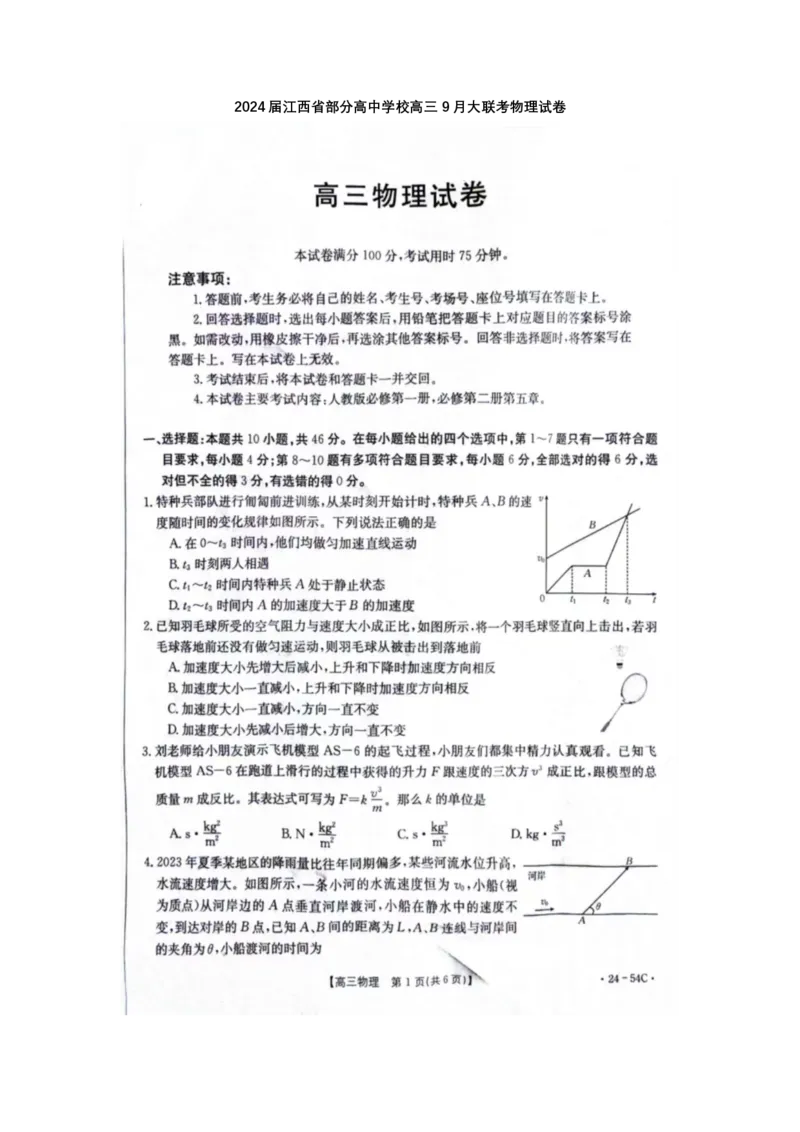 2024届江西省部分高中学校高三9月大联考物理试卷
高三物理试卷
本试卷满分100分,考试用时75分钟。
注意事项:
1.答题前,考生务必将自己的姓名、考生号、考场号、座位号填写在答题卡上。
2.回答选择题时,选出每小题答案后,用铅笔把答题卡上对应题目的答案标号涂
黑。如需改动,用橡皮擦干净后,再选涂其他答案标号。回答非选择题时,将答案写在
答题卡上。写在本试卷上无效。
3.考试结束后,将本试卷和答题卡一并交回。
4.本试卷主要考试内容:人教版必修第一册,必修第二册第五章。
一、选择题:本题共10小题,共46分。在每小题给出的四个选项中,第1~7题只有一项符合题
目要求,每小题4分;第8~10题有多项符合题目要求,每小题6分,全部选对的得6分,选
对但不全的得3分,有选错的得0分。
1.特种兵部队进行匍匐前进训练,从某时刻开始计时,特种兵A、B的速
度随时间的变化规律如图所示。下列说法正确的是
A.在0~t₃时间内,他们均做匀加速直线运动
B.t₃时刻两人相遇
C.t₁~t₂时间内特种兵A处于静止状态
D.t₂~t₃时间内A的加速度大于B的加速度
v
B
v₀
A
0 t₁ t₂ t₃ t
2.已知羽毛球所受的空气阻力与速度大小成正比,如图所示,将一个羽毛球竖直向上击出,若羽
毛球落地前还没有做匀速运动,则羽毛球从被击出到落地前
A.加速度大小先增大后减小,上升和下降时加速度方向相反
B.加速度大小一直减小,上升和下降时加速度方向相反
C.加速度大小一直减小,方向一直不变
D.加速度大小先减小后增大,方向一直不变
3.刘老师给小朋友演示飞机模型AS-6的起飞过程,小朋友们都集中精力认真观看。已知飞
机模型AS-6在跑道上滑行的过程中获得的升力F跟速度的三次方v³成正比,跟模型的总
质量m成反比。其表达式可写为F=k v³/m。那么k的单位是
A. s·kg²/m² B. N·kg²/m² C. s·kg³/m² D. kg·s³/m³
4.2023年夏季某地区的降雨量比往年同期偏多,某些河流水位升高,
水流速度增大。如图所示,一条小河的水流速度恒为v₀,小船(视
为质点)从河岸边的A点垂直河岸渡河,小船在静水中的速度不
变,到达对岸的B点,已知A、B间的距离为L,A、B连线与河岸间
的夹角为θ,小船渡河的时间为
B
河岸
v₀
θ
A
【高三物理 第1页(共6页)】
·24-54C·